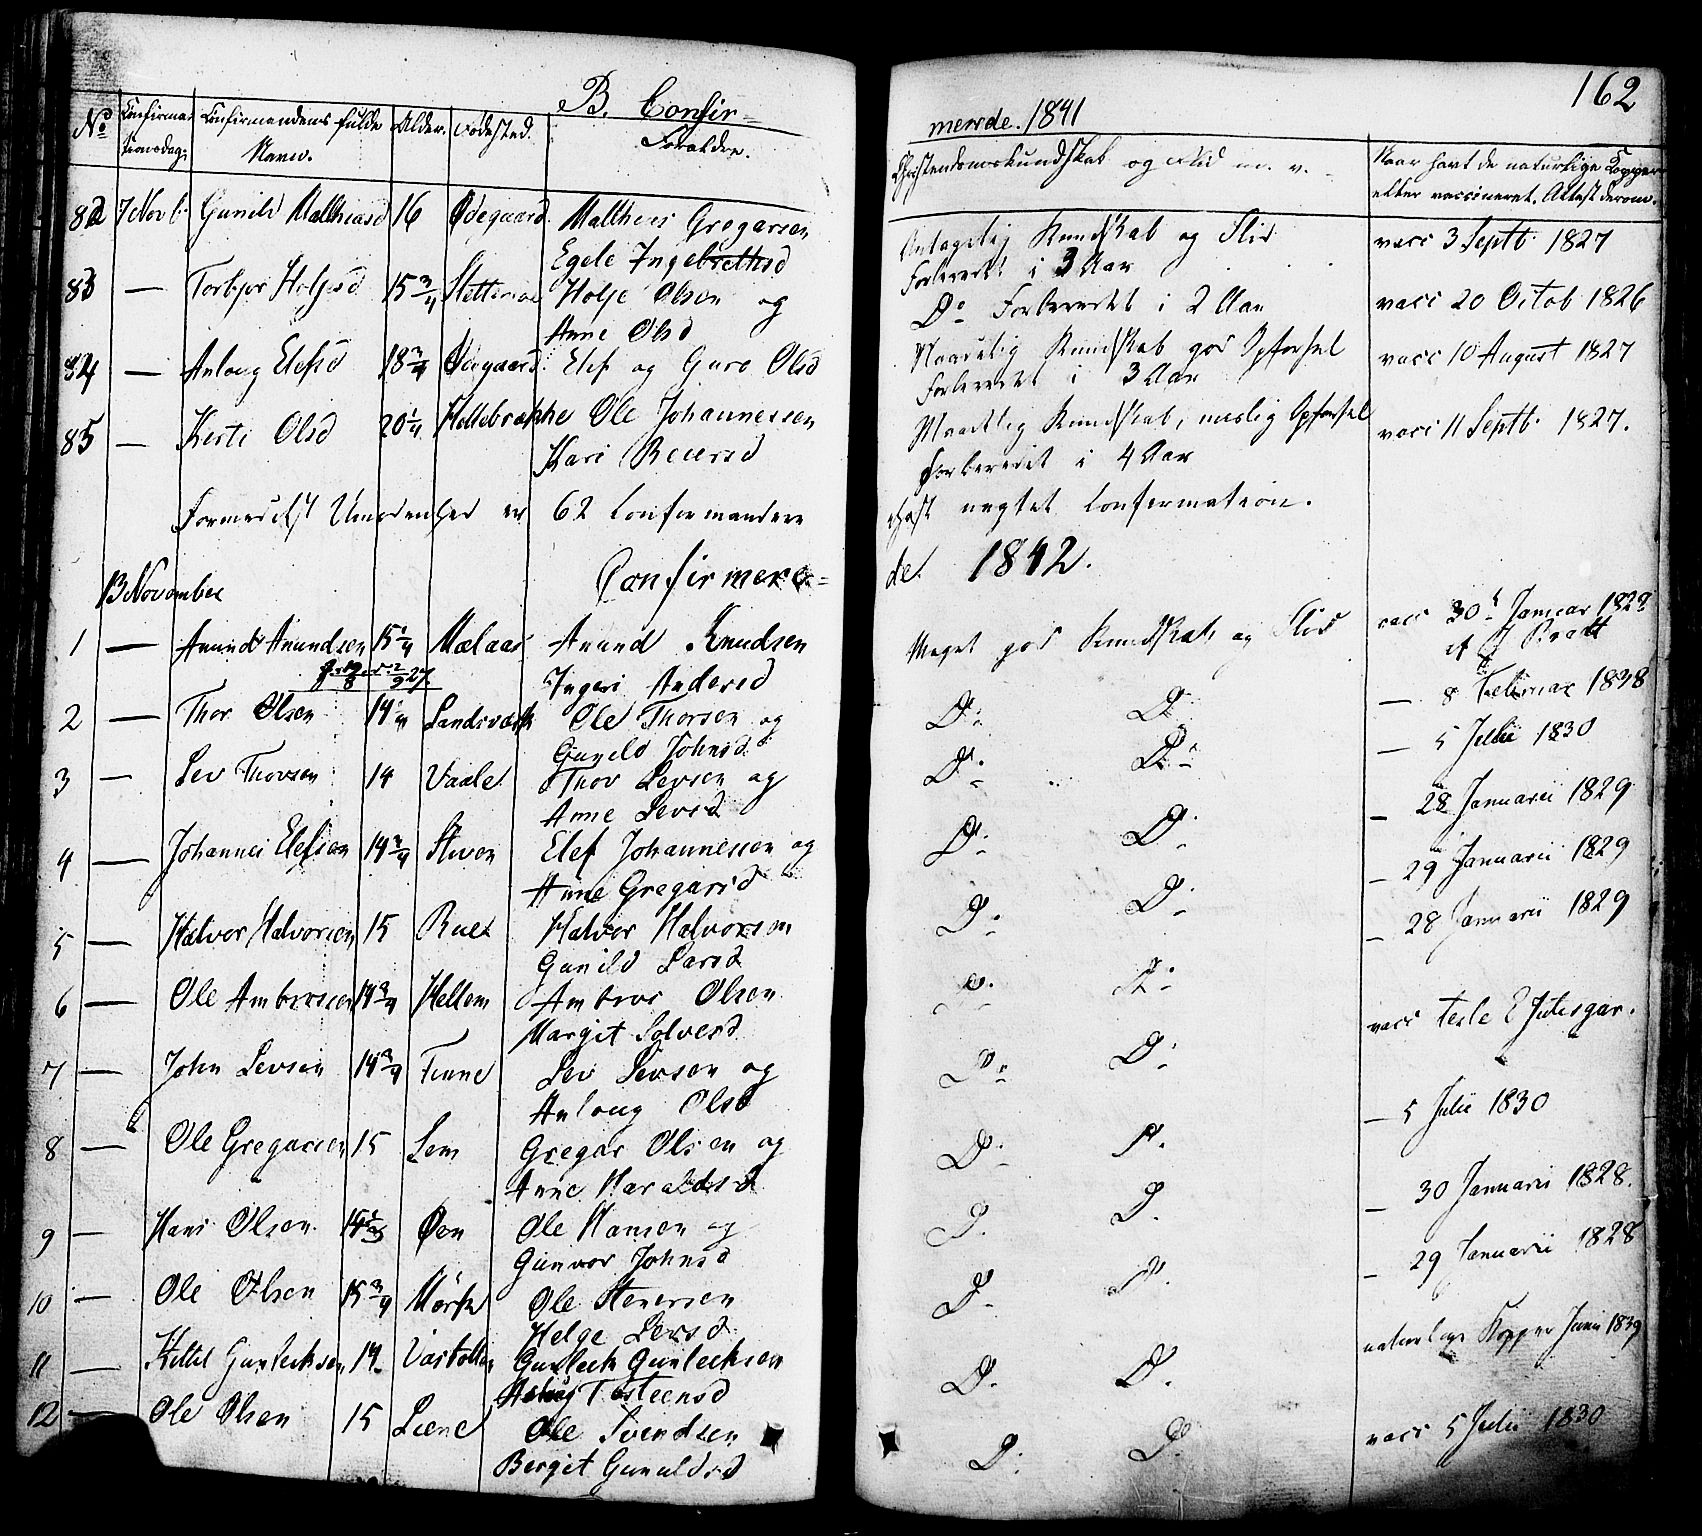 B. Confir=
merede. 1841
162
No
Confirma-
tionsdag.
Confirmandens fulde
Navn.
Alder.
Fødested.
Forældre.
Christendomskundskab og Flid m. v.
Naar havt de naturlige Kopper
eller vaccineret. Attest derom.
82 7 Novb. Gunild Matthiasd 16 Ødegaard Matthies Gregarsen
Egele Ingebrethsd
Antagelig Kundskab og Flid
Forberedt i 3 Aar
vacc 3 Septb. 1827
83 — Torbjør Holjesd 15 3/4 Holje Olsen og
Anne Olsd
Do Forberedt i 2 Aar
vacc 20 Octob 1826
84 — Aslaug Elefsd 18 3/4 Ødegaard Elef og Guro Olsd
Maadelig Kundskab god Opførsel
Forberedt i 3 Aar
vacc 10 August 1827
85 — Kirsti Olsd 20 1/4 Ole Johannessen
Kari Reiersd
Maadelig Kundskab, Opførsel
Forberedt i 4 Aar
vacc 11 Septb. 1827.
Formedelst er 62 Confirmandere
nægtet Confirmation.
Confirmere=
de. 1842.
13 November
1 — Amund Amundsen 15 1/4 Mælaas Amund Knudsen
Ingeri Andersd
Meget god Kundskab og Flid
vacc 30 Januar 1828
af
2 — Thor Olsen 14 1/4 Landsværk Ole Thorsen og
Gunild Johnsd
D: D:
— 8 Februar 1838
3 — Lev Thorsen 14 Vaale Thov Levsen og
Anne Levsd
D: D:
— 5 Julii 1830
4 — Johannes Elefsen 14 3/4 Stivon Elef Johannessen og
Anne Gregarsd
D: D:
— 28 Januarii 1829
5 — Halvor Halvorsen 15 Rue Halvor Halvorsen
Gunild Larsd
D: D:
— 29 Januarii 1829
6 — Ole Ambrosen 14 3/4 Hellem Ambros Olsen
Margit Solvesd
D: D:
— 28 Januarii 1829
7 — John Levsen 14 3/4 Tinne Lev Levsen og
Aslaug Olsd
D: D:
vacc
8 — Ole Gregarsen 15 Lem Gregar Olsen og
Anne Haraldsd
D: D.
— 5 Julii 1830
9 — Hans Olsen Øen Ole Hansen og
Gunvor Johnsd
D. D.
— 30 Januarii 1828.
10 — Ole Olsen 15 3/4 Mörk Ole Stenersen
Helge Levsd
D. D.
— 29 Januarii 1828
11 — Kittel Gunleiksen 14 Gunleik Gunleiksen
Aslaug Tosteensd
D. D.
naturlige Kopper Junii 1839
12 — Ole Olsen 15 Liene Ole Svendsen
Bergit Gunuldsd
D. D.
vacc 5 Julii 1830